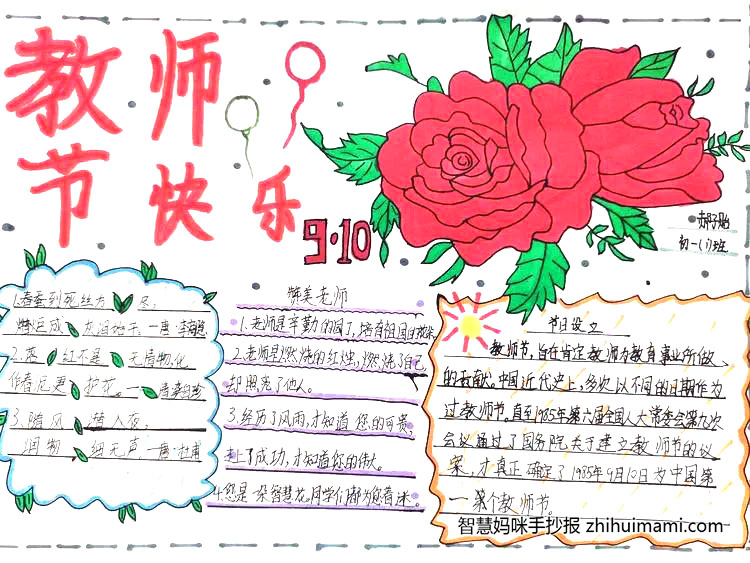 教师
节快乐
9·10
初一(1)班
1.春蚕到死丝方尽,
蜡炬成灰泪始干。—唐·李商隐
2.落红不是无情物,化
作春泥更护花。—清·龚自珍
3.随风潜入夜,
润物细无声—唐·杜甫
赞美老师
1.老师是辛勤的园丁,培育祖国的花朵
2.老师是燃烧的红烛,燃烧了自己
却照亮了他人。
3.经历了风雨,才知道您的可贵,
上了成功,才知道您的伟大。
4.您是一朵智慧花,同学们都为您着迷。
节日设立
教师节,旨在肯定教师为教育事业所做
的贡献。中国近代史上,多次以不同的日期作为
过教师节。直至1985年第六届全国人大常委会第九次
会议通过了国务院关于建立教师节的议
案,才真正确定了1985年9月10日为中国第
一个教师节。
智慧妈咪手抄报 zhihuimami.com